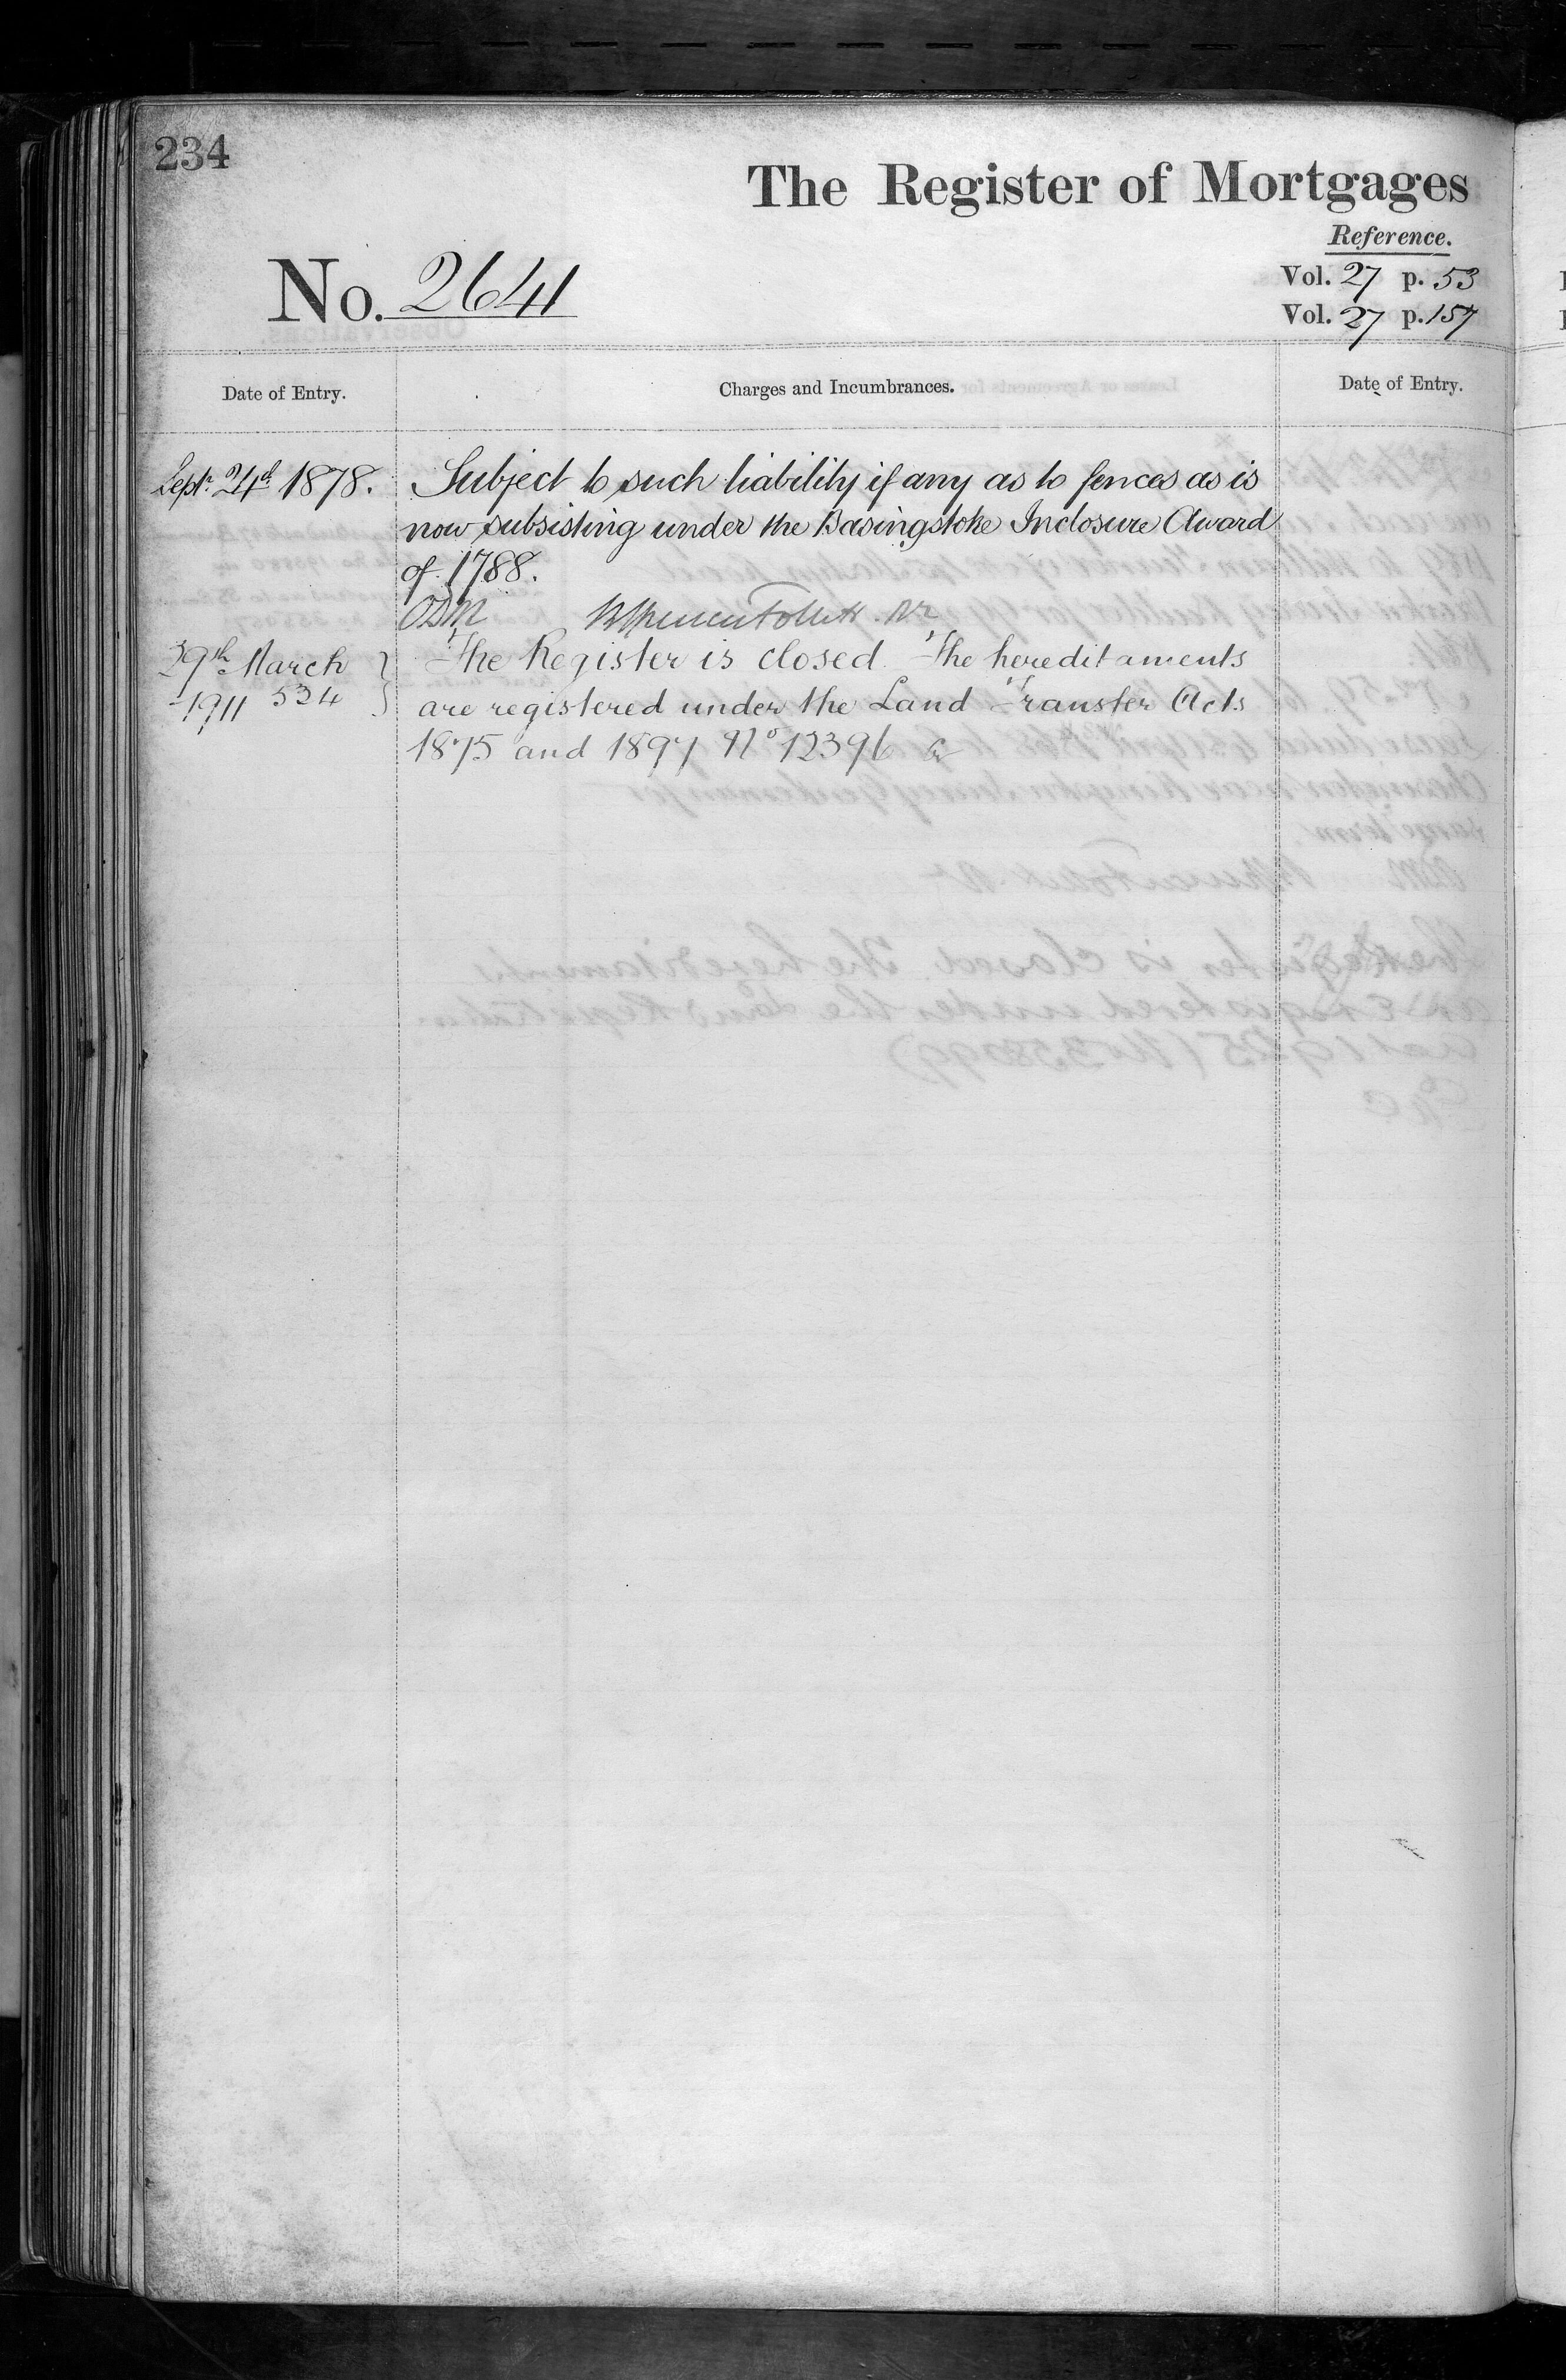 234
The Register of Mortgages
Reference.
No. 2641
Vol. 27 p. 53
Vol. 27 p. 157
Date of Entry.
Charges and Incumbrances.
Date of Entry.
Septr. 24th 1878.
Subject to such liability if any as to fences as is
now subsisting under the Basingstoke Inclosure Award
of 1788.
29th March
1911 534
The Register is closed. The hereditaments
are registered under the Land Transfer Acts
1875 and 1897 No 12396